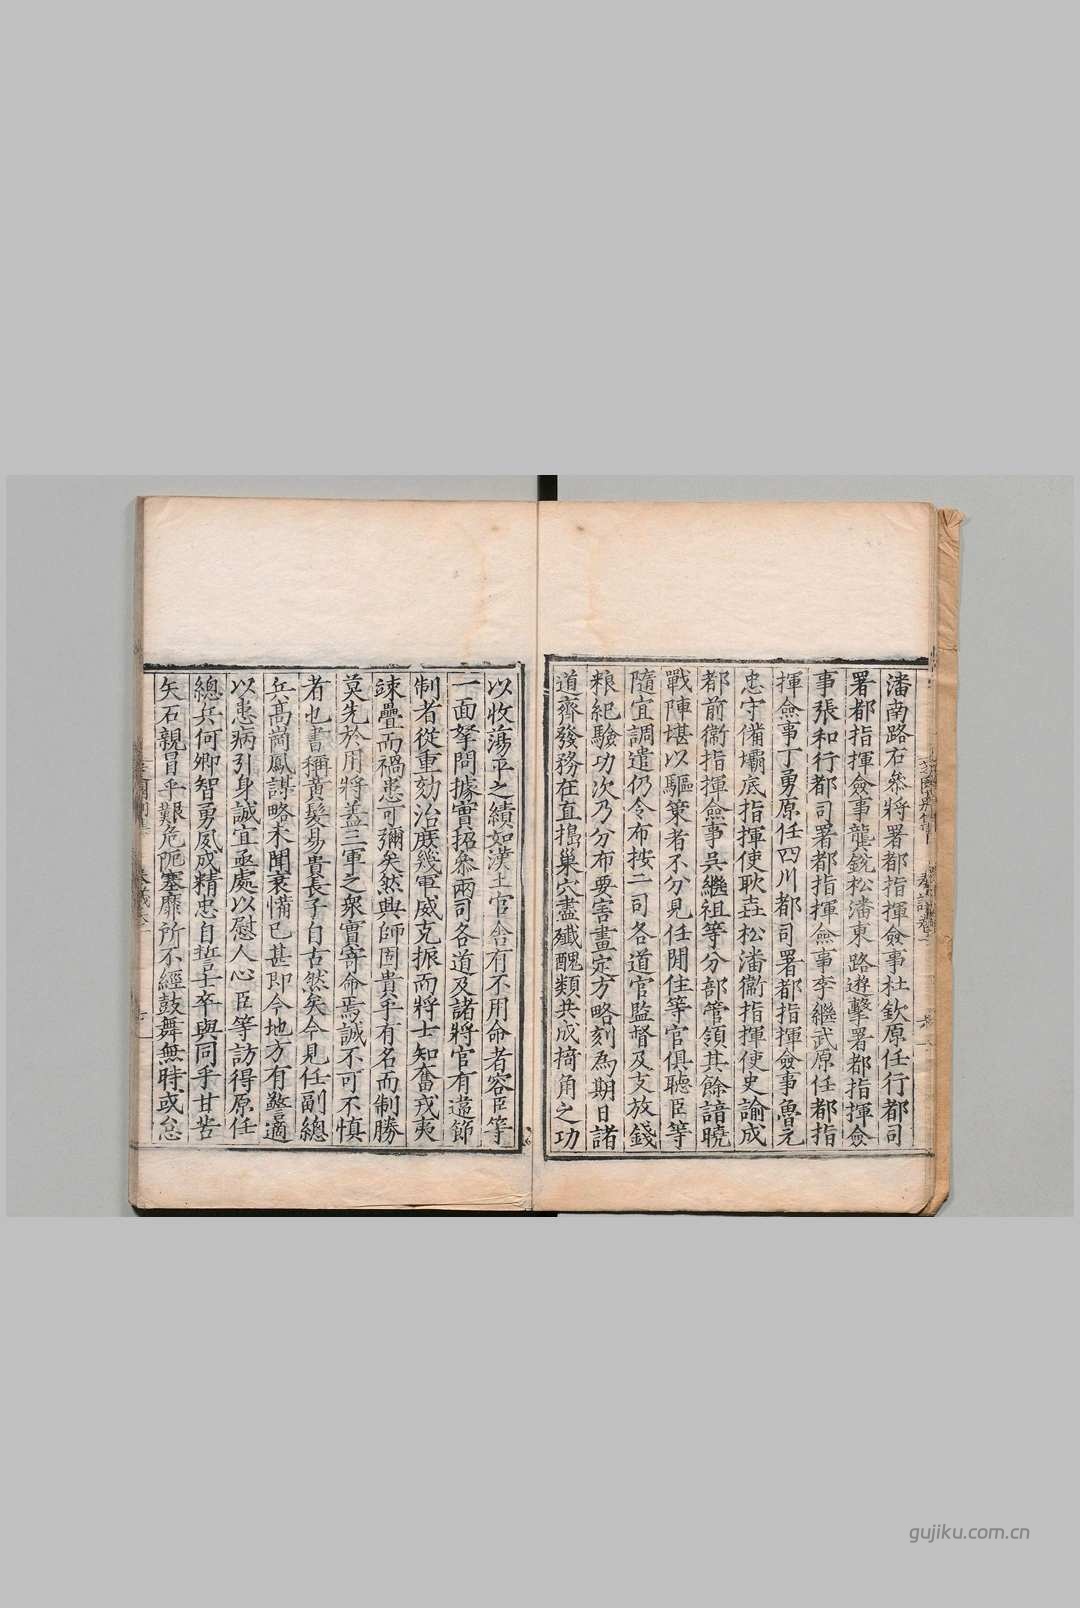 潘南路右叅將署都指揮僉事杜欽原任行都司
署都指揮僉事龔銳松潘東路遊擊署都指揮僉
事張和行都司署都指揮僉事李繼武原任都指
揮僉事丁勇原任四川都司署都指揮僉事魯元
忠守備壩底指揮使耿垚松潘衞指揮使史諭成
都前衞指揮僉事吳繼祖等分部管領其餘諳曉
戰陣堪以驅策者不分見任閒住等官俱聽臣等
隨宜調遣仍令布按二司各道官監督及支放錢
粮紀驗功次乃分布要害畫定方略刻為期日諸
道齊發務在直搗巢穴盡殲醜類共成掎角之功
以收蕩平之績如漢土官舍有不用命者容臣等
一面拏問據實招叅兩司各道及諸將官有違節
制者從重劾治庶幾軍威克振而將士知奮戎夷
竦疊而禍患可彌矣然興師固貴乎有名而制勝
莫先於用將盖三軍之衆實寄命焉誠不可不慎
者也書稱黃髮易貴長子自古然矣今見任副總
兵高崗鳳謀略未聞衰憊已甚即今地方有警適
以患病引身誠宜亟處以慰人心臣等訪得原任
總兵何卿智勇夙成精忠自誓士卒與同乎甘苦
矢石親冒乎艱危阨塞靡所不經鼓舞無時或怠
gujiku.com.cn